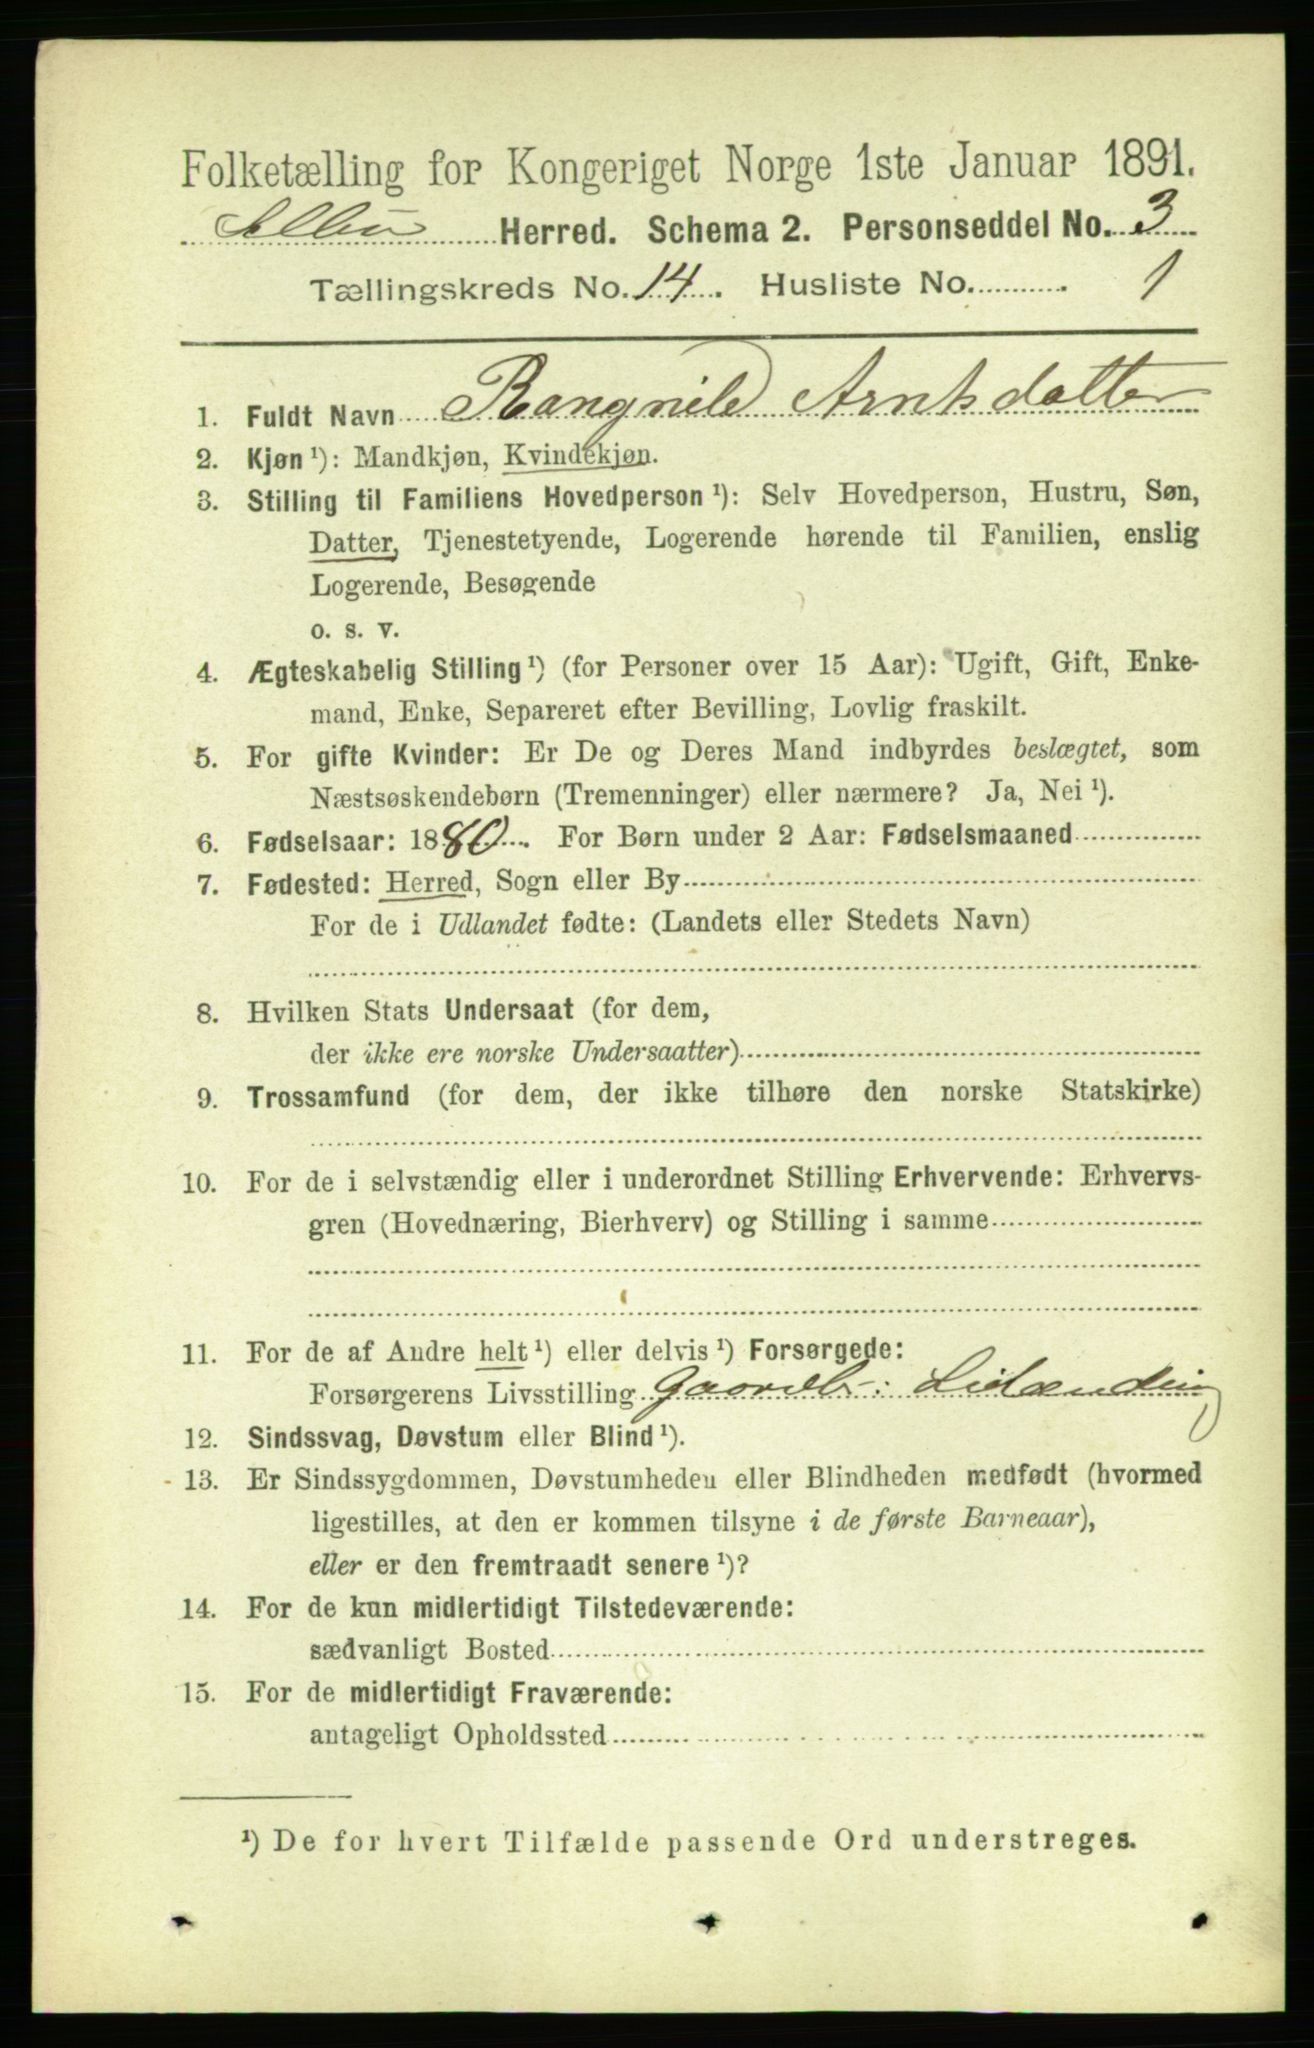 Folketælling for Kongeriget Norge 1ste Januar 1891.
Aalbu Herred. Schema 2. Personseddel No. 3
Tællingskreds No. 14. Husliste No. 1
1. Fuldt Navn Rangnild Arntsdatter
2. Kjøn ¹): Mandkjøn, Kvindekjøn.
3. Stilling til Familiens Hovedperson ¹): Selv Hovedperson, Hustru, Søn,
Datter, Tjenestetyende, Logerende hørende til Familien, enslig
Logerende, Besøgende
o. s. v.
4. Ægteskabelig Stilling ¹) (for Personer over 15 Aar): Ugift, Gift, Enke-
mand, Enke, Separeret efter Bevilling, Lovlig fraskilt.
5. For gifte Kvinder: Er De og Deres Mand indbyrdes beslægtet, som
Næstsøskendebørn (Tremenninger) eller nærmere? Ja, Nei ¹).
6. Fødselsaar: 1880. For Børn under 2 Aar: Fødselsmaaned
7. Fødested: Herred, Sogn eller By
For de i Udlandet fødte: (Landets eller Stedets Navn)
8. Hvilken Stats Undersaat (for dem,
der ikke ere norske Undersaatter)
9. Trossamfund (for dem, der ikke tilhøre den norske Statskirke)
10. For de i selvstændig eller i underordnet Stilling Erhvervende: Erhvervs-
gren (Hovednæring, Bierhverv) og Stilling i samme
11. For de af Andre helt ¹) eller delvis ¹) Forsørgede:
Forsørgerens Livsstilling
12. Sindssvag, Døvstum eller Blind ¹).
13. Er Sindssygdommen, Døvstumheden eller Blindheden medfødt (hvormed
ligestilles, at den er kommen tilsyne i de første Barneaar),
eller er den fremtraadt senere ¹)?
14. For de kun midlertidigt Tilstedeværende:
sædvanligt Bosted
15. For de midlertidigt Fraværende:
antageligt Opholdssted
¹) De for hvert Tilfælde passende Ord understreges.